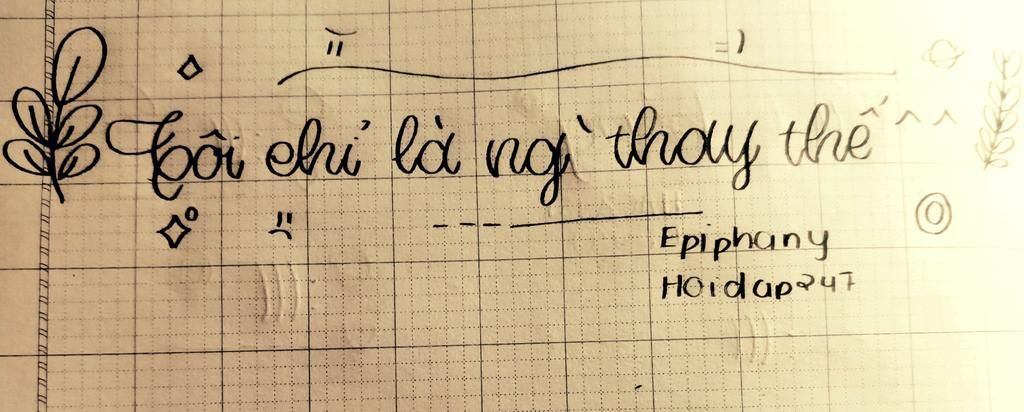 =)
Tôi chỉ là ng` thay thế ^ ^
Epiphany
Hoidap247